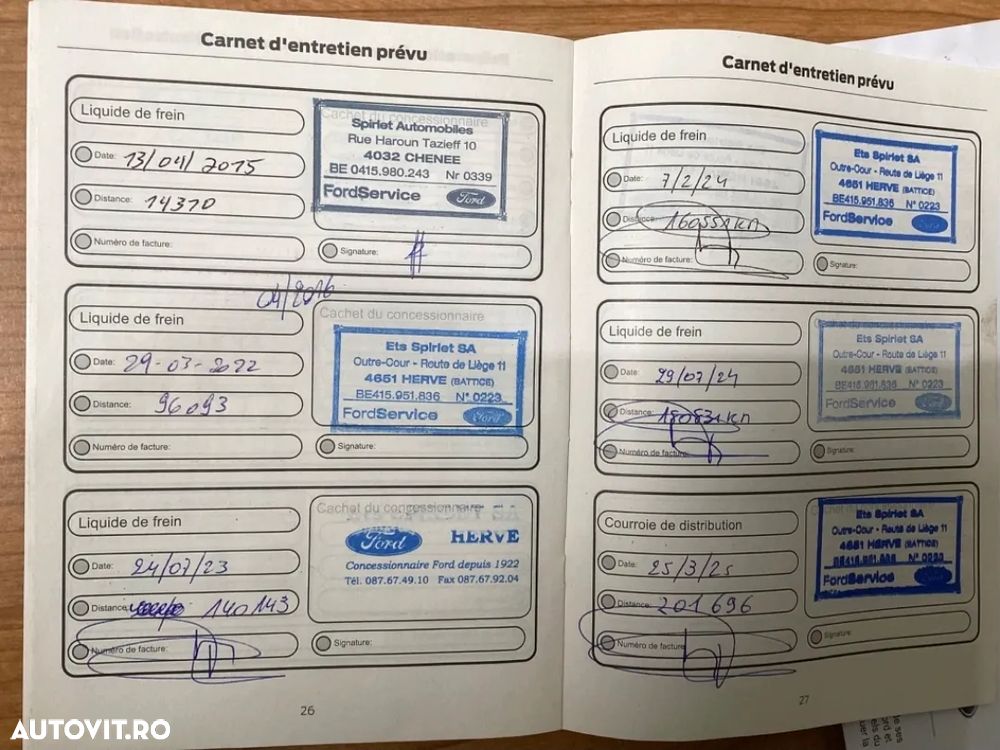 Carnet d'entretien prévu
Liquide de frein
Cachet du concessionnaire
Date: 13/04/2015
Distance: 14370
Numéro de facture:
Spirlet Automobiles
Rue Haroun Tazieff 10
4032 CHENEE
BE 0415.980.243 Nr 0339
FordService Ford
Signature:
04/2016
Liquide de frein
Cachet du concessionnaire
Date: 29-03-2022
Distance: 96093
Numéro de facture:
Ets Spirlet SA
Outre-Cour - Route de Liège 11
4651 HERVE (BATTICE)
BE415.951.836 N° 0223
FordService Ford
Signature:
Liquide de frein
Cachet du concessionnaire
Date: 24/07/23
Distance: 140143
Numéro de facture:
Ford HERVE
Concessionnaire Ford depuis 1922
Tél. 087.67.49.10 Fax 087.67.92.04
Signature:
26
Carnet d'entretien prévu
Liquide de frein
Date: 7/2/24
Distance:
Numéro de facture:
Ets Spirlet SA
Outre-Cour - Route de Liège 11
4651 HERVE (BATTICE)
BE415.951.836 N° 0223
FordService Ford
Signature:
Liquide de frein
Date: 29/07/24
Distance:
Numéro de facture:
Ets Spirlet SA
Outre-Cour - Route de Liège 11
4651 HERVE (BATTICE)
BE415.951.836 N° 0223
FordService Ford
Signature:
Courroie de distribution
Date: 25/3/25
Distance: 201696
Numéro de facture:
Ets Spirlet SA
Outre-Cour - Route de Liège 11
4651 HERVE (BATTICE)
FordService Ford
Signature:
27
AUTOVIT.RO